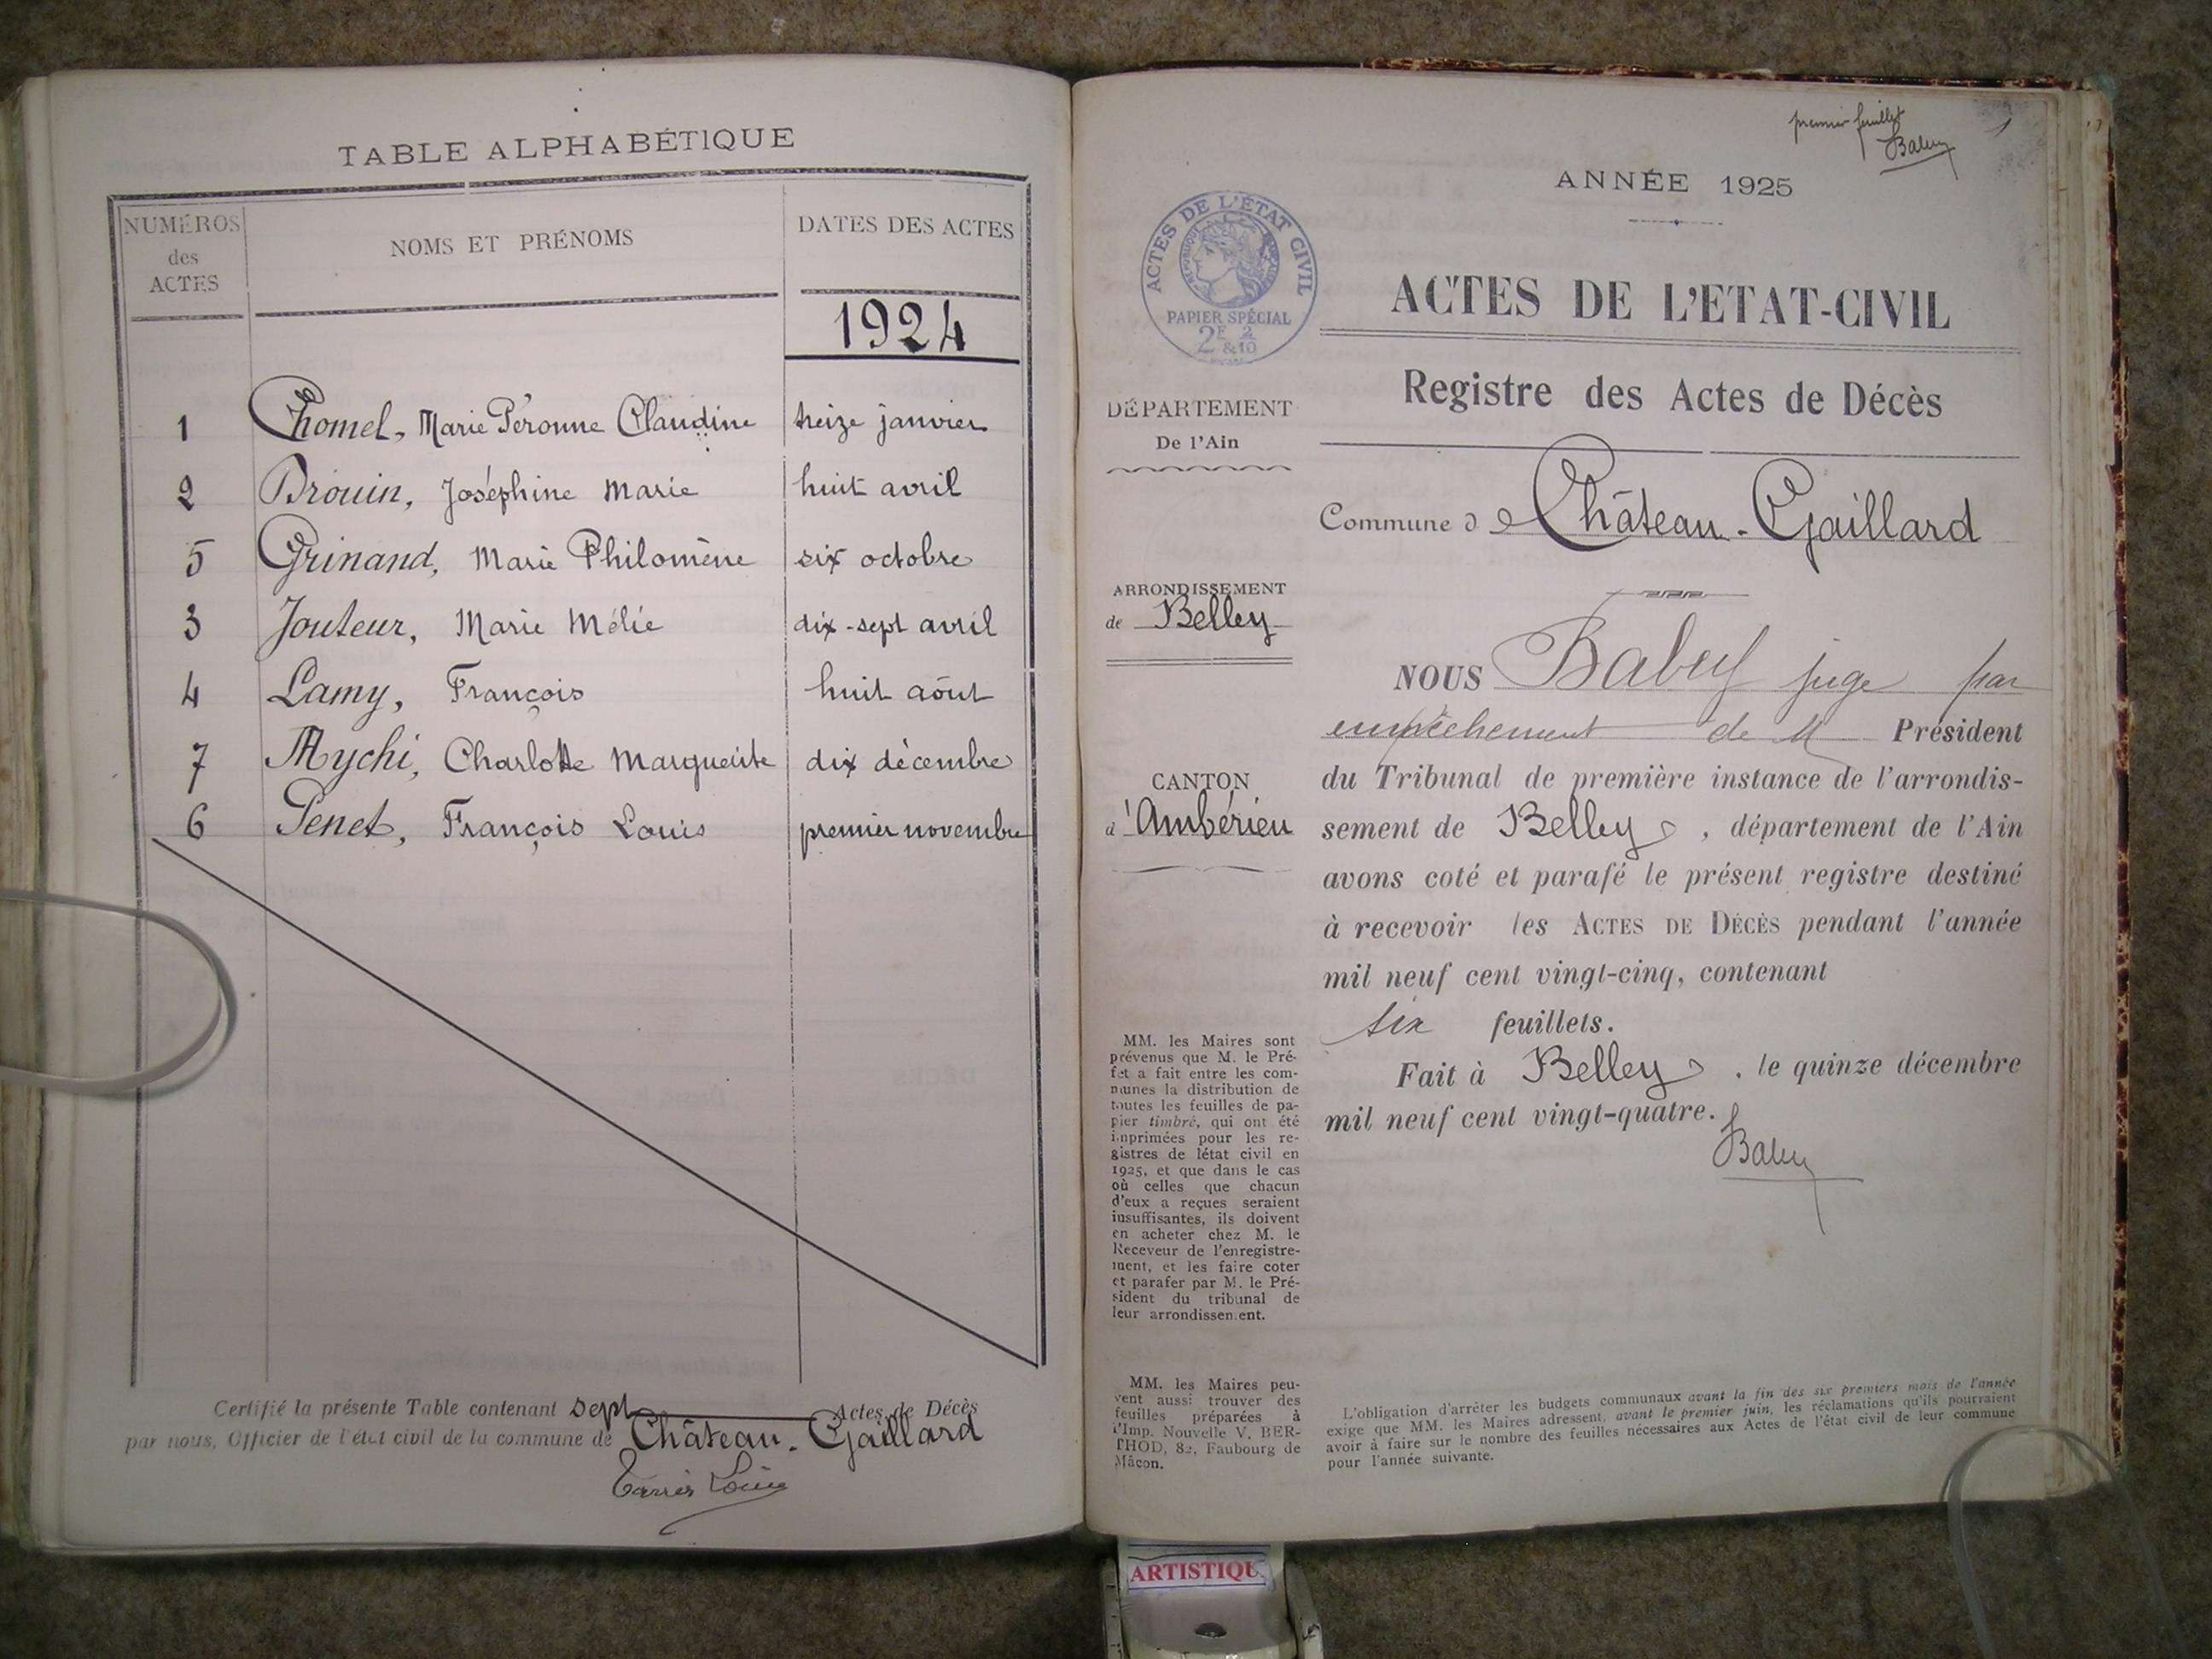 TABLE ALPHABÉTIQUE
NUMÉROS
des
ACTES
NOMS ET PRÉNOMS
DATES DES ACTES
1924
1 Chomel, Marie Péronne Claudine treize janvier
2 Drouin, Joséphine Marie huit avril
5 Grinand, Marie Philomène six octobre
3 Jouteur, Marie Mélie dix-sept avril
4 Lamy, François huit août
7 Mychi, Charlotte Marguerite dix décembre
6 Penet, François Louis premier novembre
Certifié la présente Table contenant sept Actes de Décès
par nous, Officier de l'état civil de la commune de Château-Gaillard
premier feuillet
1
ANNÉE 1925
ACTES DE L'ÉTAT CIVIL
PAPIER SPÉCIAL
ACTES DE L'ETAT-CIVIL
Registre des Actes de Décès
DÉPARTEMENT
De l'Ain
Commune de Château-Gaillard
ARRONDISSEMENT
de Belley
CANTON
d'Ambérieu
NOUS juge par
empêchement de M Président
du Tribunal de première instance de l'arrondis-
sement de Belley, département de l'Ain
avons coté et parafé le présent registre destiné
à recevoir les ACTES DE DÉCÈS pendant l'année
mil neuf cent vingt-cinq, contenant
six feuillets.
Fait à Belley, le quinze décembre
mil neuf cent vingt-quatre.
MM. les Maires sont
prévenus que M. le Pré-
fet a fait entre les com-
munes la distribution de
toutes les feuilles de pa-
pier timbré, qui ont été
imprimées pour les re-
gistres de létat civil en
1925, et que dans le cas
où celles que chacun
d'eux a reçues seraient
insuffisantes, ils doivent
en acheter chez M. le
Receveur de l'enregistre-
ment, et les faire coter
et parafer par M. le Pré-
sident du tribunal de
leur arrondissement.
MM. les Maires peu-
vent aussi trouver des
feuilles préparées à
l'Imp. Nouvelle V. BER-
THOD, 82, Faubourg de
Mâcon.
L'obligation d'arrêter les budgets communaux avant la fin des six premiers mois de l'année
exige que MM. les Maires adressent, avant le premier juin, les réclamations qu'ils pourraient
avoir à faire sur le nombre des feuilles nécessaires aux Actes de l'état civil de leur commune
pour l'année suivante.
ARTISTIQU